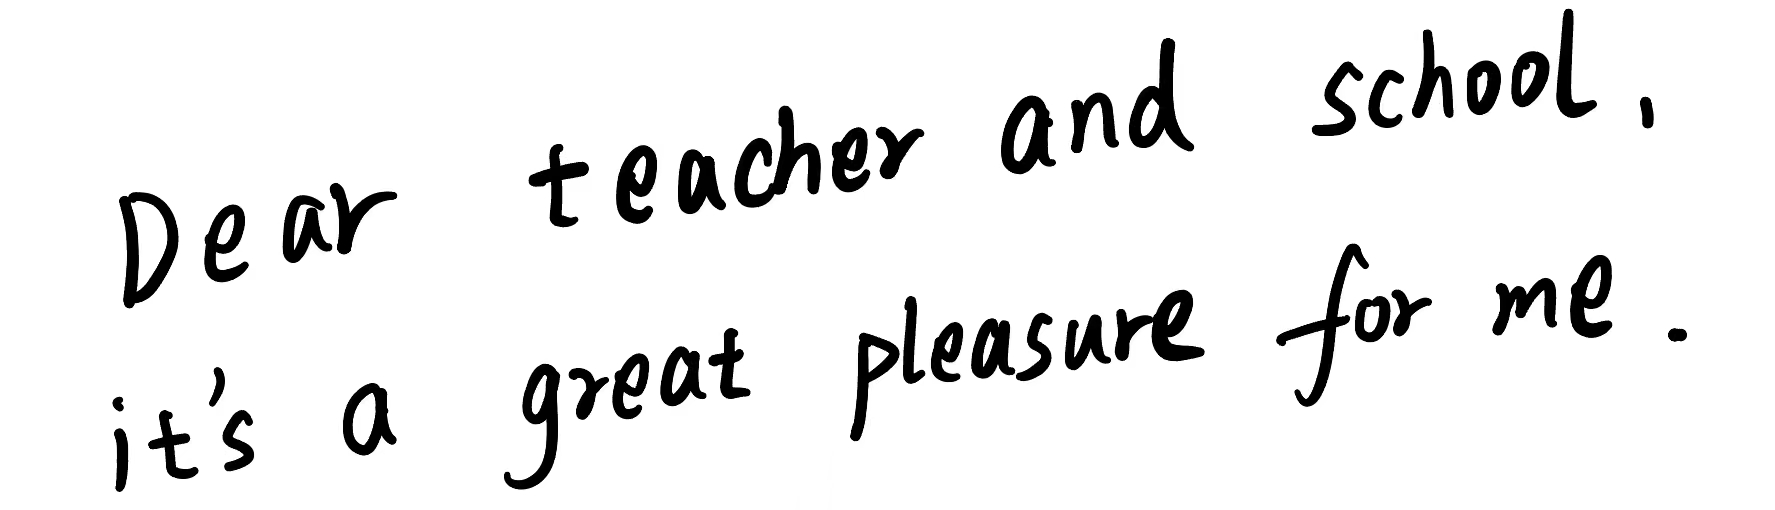 Dear teacher and school,
it's a great pleasure for me.